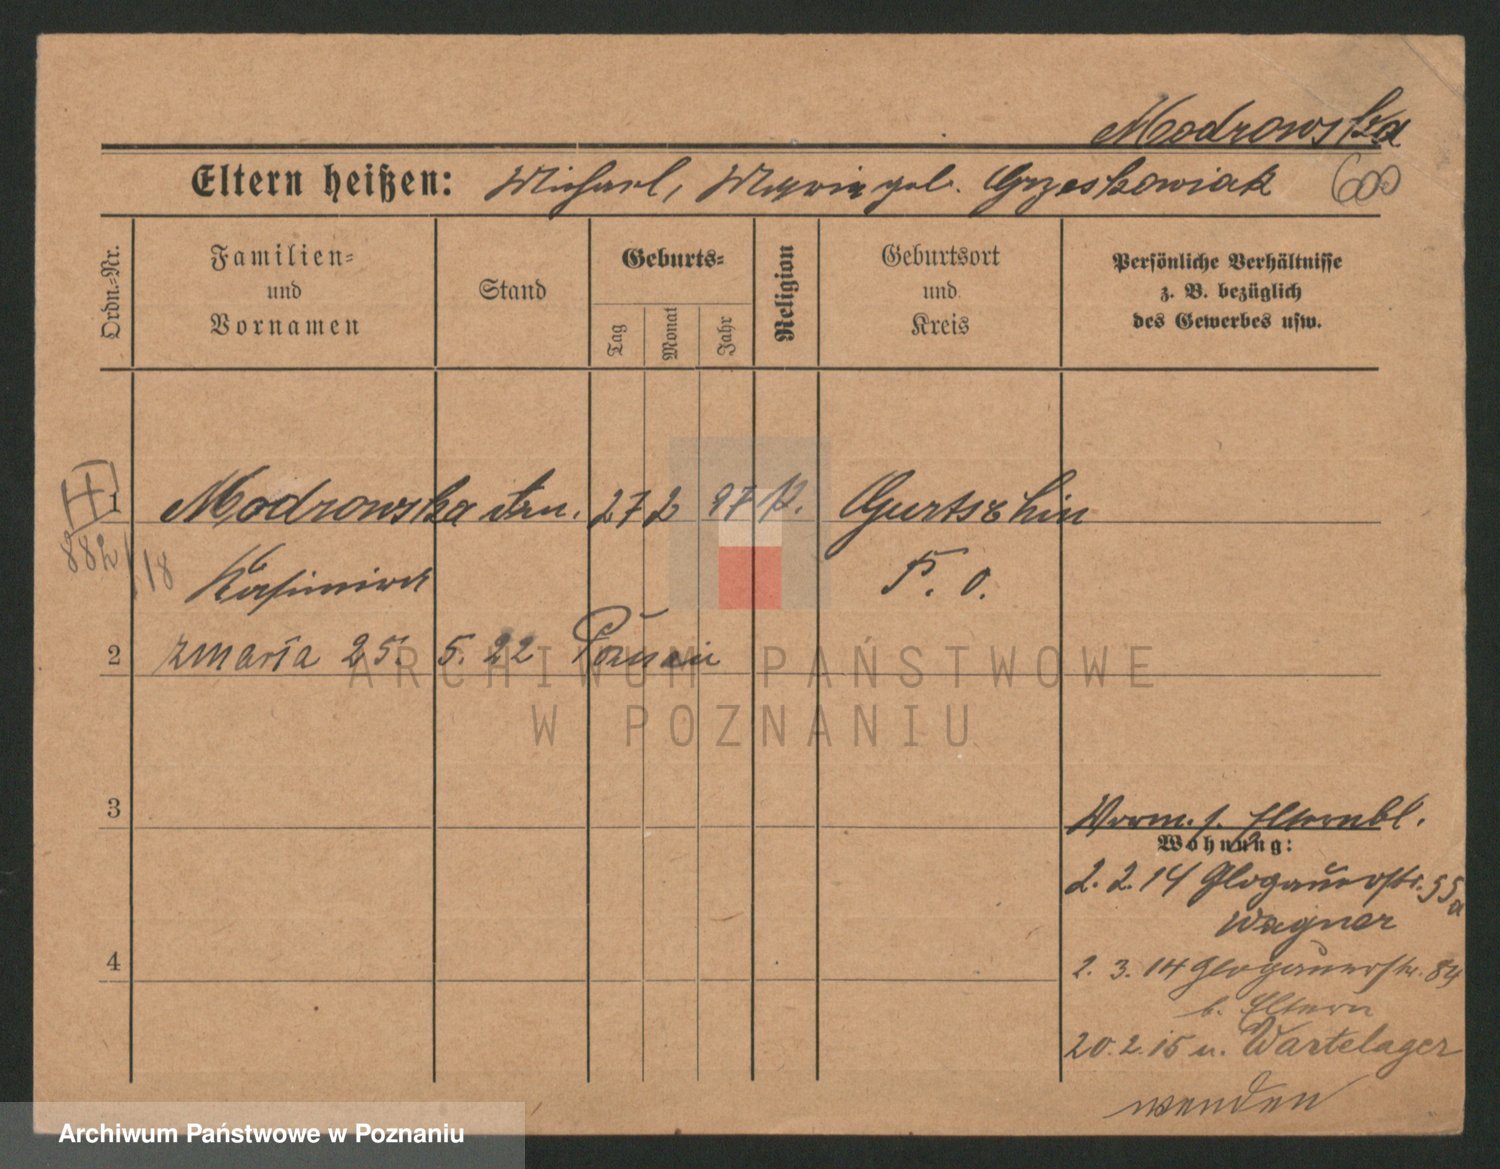 Modrowska
Eltern heißen: Michael, Marie geb. Grzeskowiak 600
Ordn.-Nr.
Familien-
und
Vornamen
Stand
Geburts-
Tag
Monat
Jahr
Religion
Geburtsort
und
Kreis
Persönliche Verhältnisse
z. B. bezüglich
des Gewerbes usw.
1 Modrowska 27 2 97 k. Gurtschin
882/18
Kasimira P. O.
2 zmarła 25. 5. 22 Poznań
ARCHIWUM PAŃSTWOWE
W POZNANIU
3
Vorm. s. Elternbl.
Wohnung:
2. 2. 14 Glogauerstr. 55a
Wagner
4
2. 3. 14 Glogauerstr. 84
b. Eltern
20. 2. 15 n. Wartelager
wenden
Archiwum Państwowe w Poznaniu